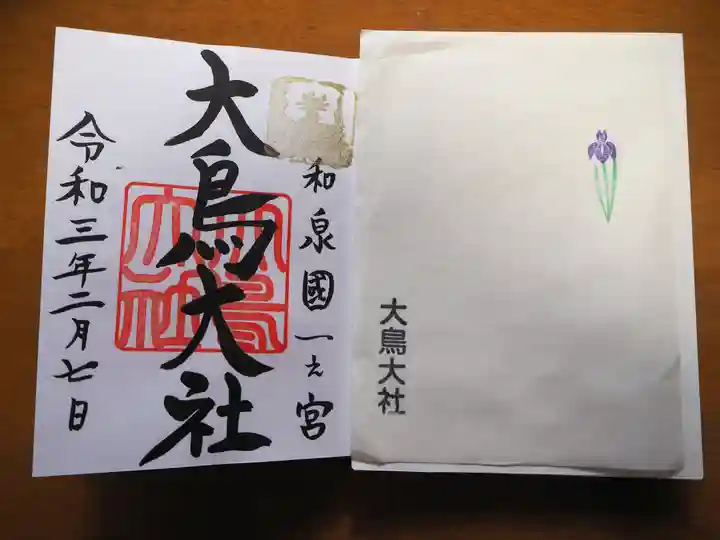 和泉國一之宮
大鳥大社
令和三年二月七日
大鳥大社
大鳥大社